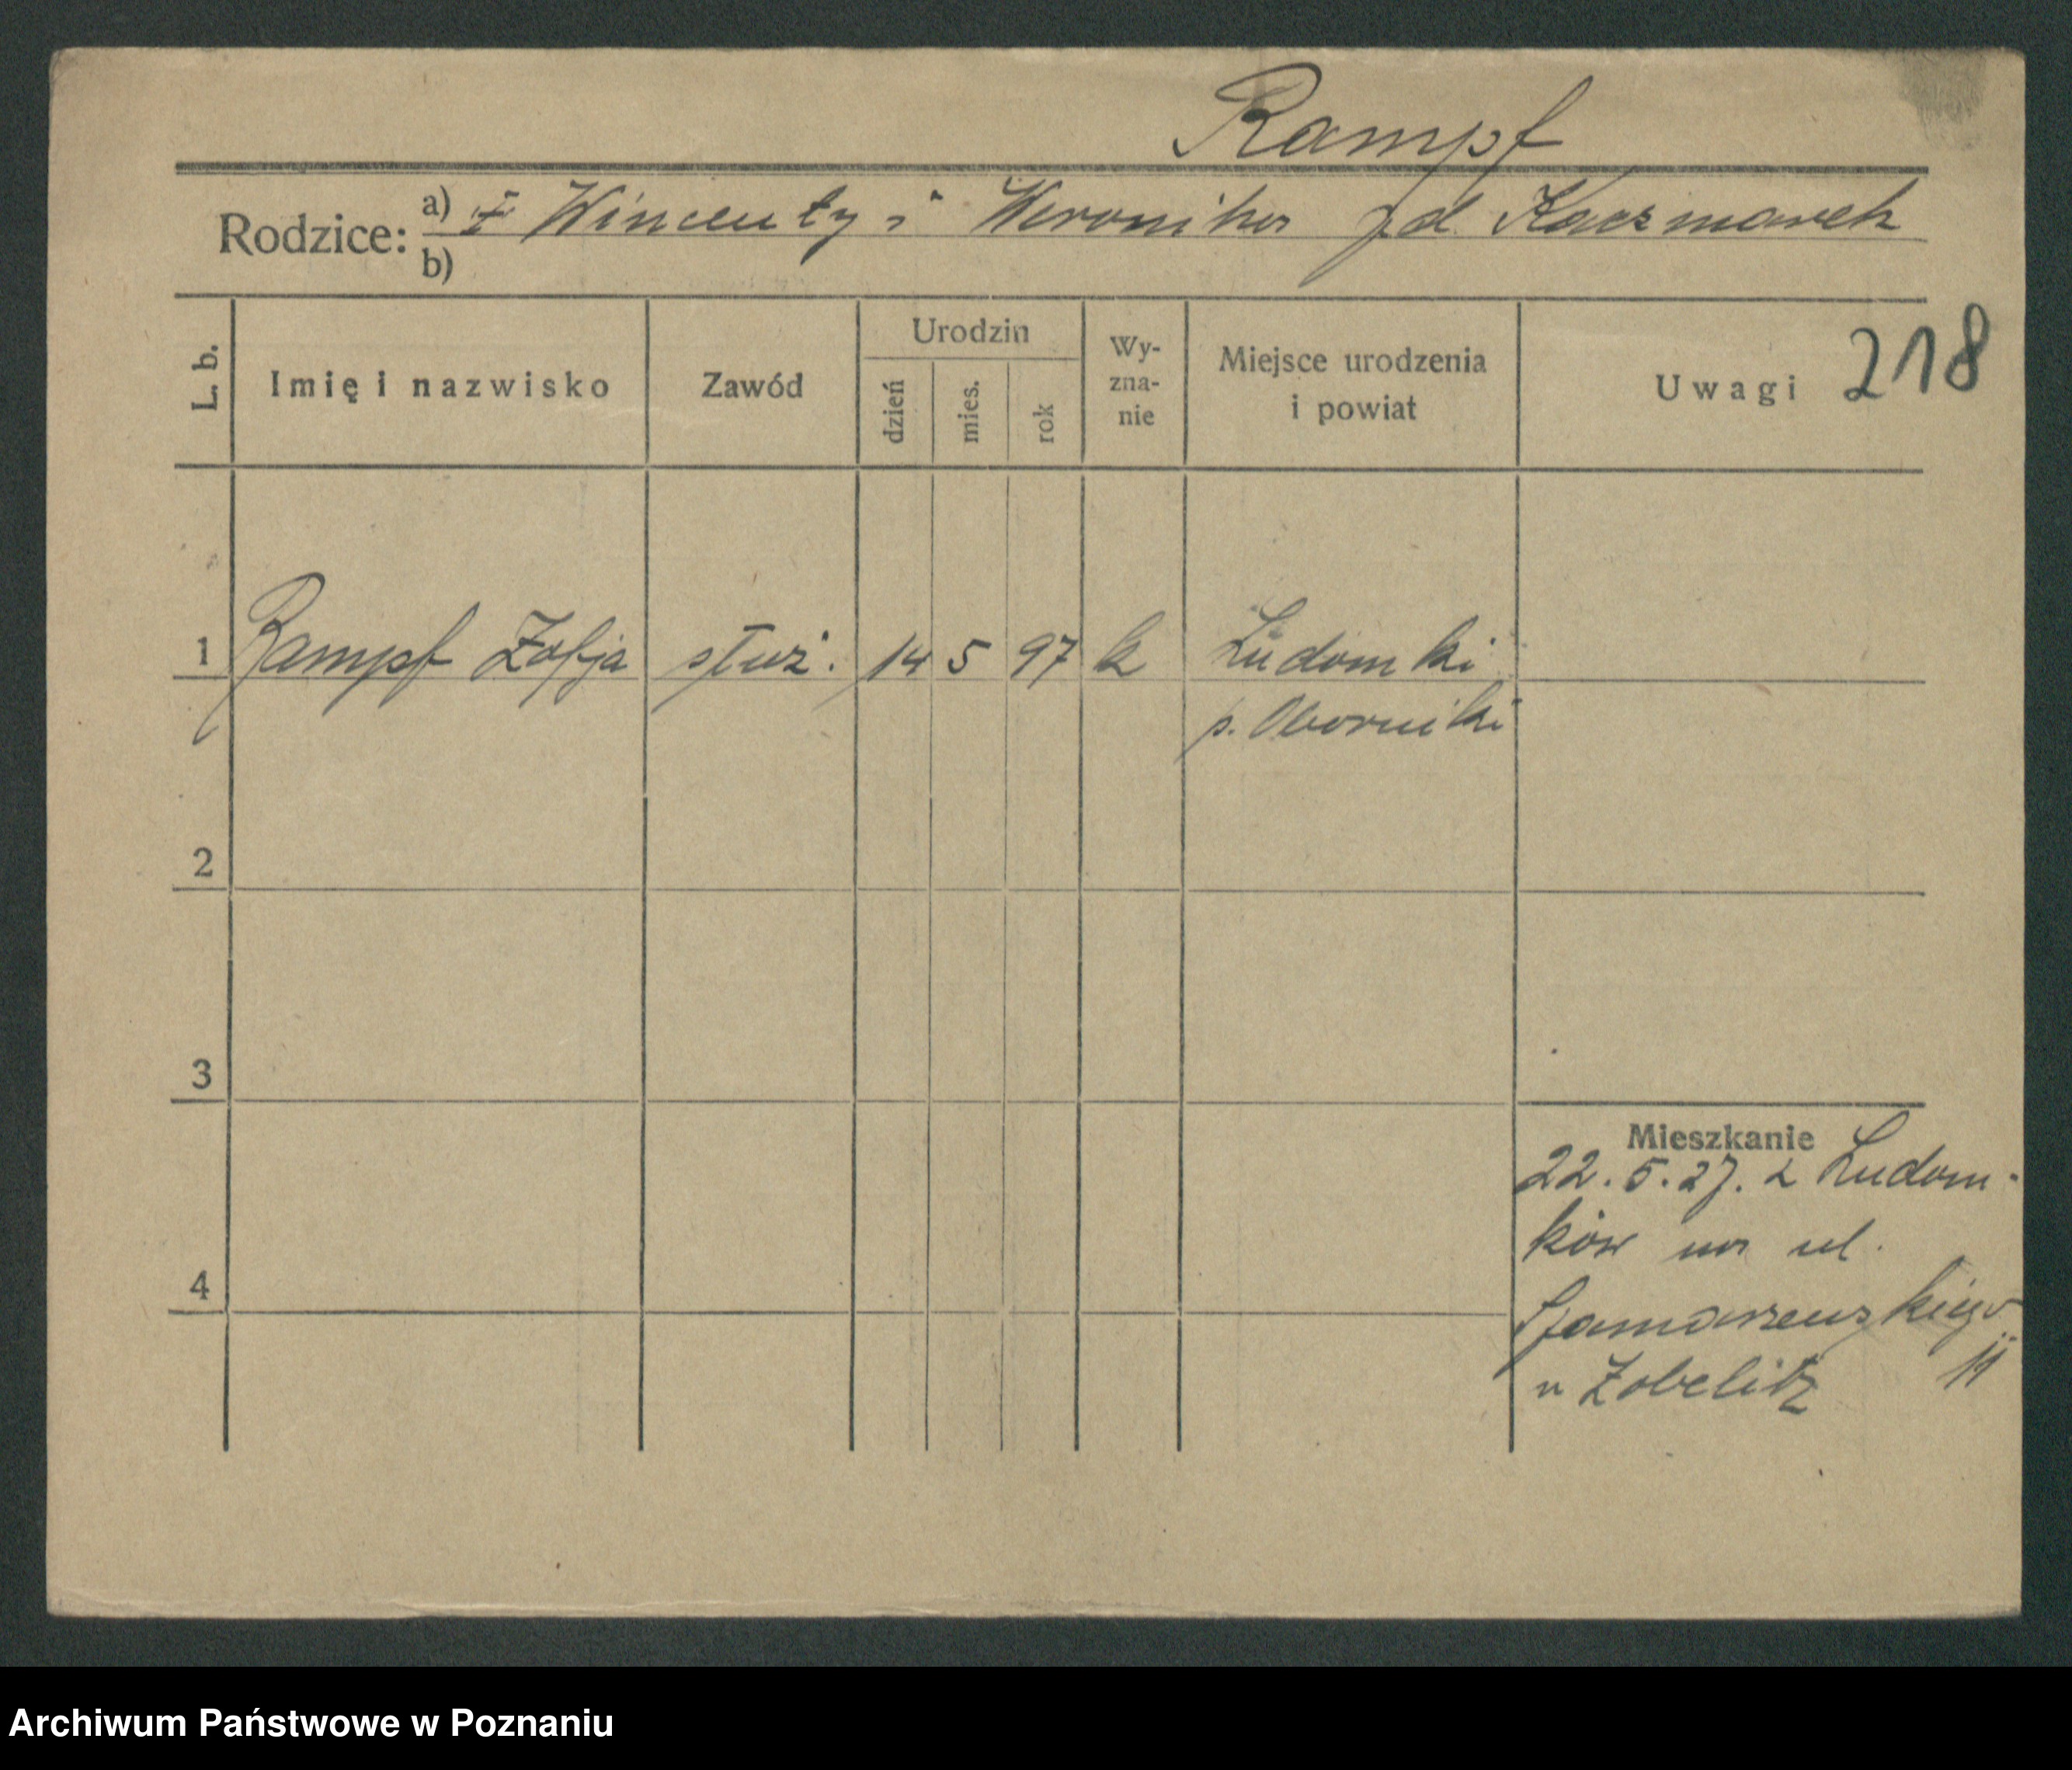 Rampf
Rodzice: a) Wincenty i Weronika z d. Kaczmarek
b)
L. b.
Imię i nazwisko
Zawód
Urodzin
dzień
mies.
rok
Wy-
zna-
nie
Miejsce urodzenia
i powiat
Uwagi
218
1 Rampf Zofja służ. 14 5 97 k Ludomki
p. Oborniki
2
3
4
Mieszkanie
22.5.27. z Ludom-
ków na ul.
Szamarzewskiego
11
u Zobelitz
Archiwum Państwowe w Poznaniu